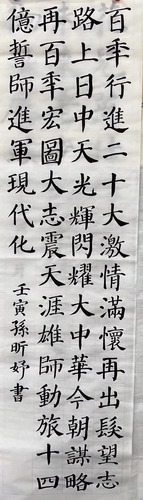 百年行進二十大激情滿懷再出髮望志
路上日中天光輝閃耀大中華今朝謀略
再百年宏圖大志震天涯雄師動旅十四
億誓師進軍現代化
壬寅孫昕妤書